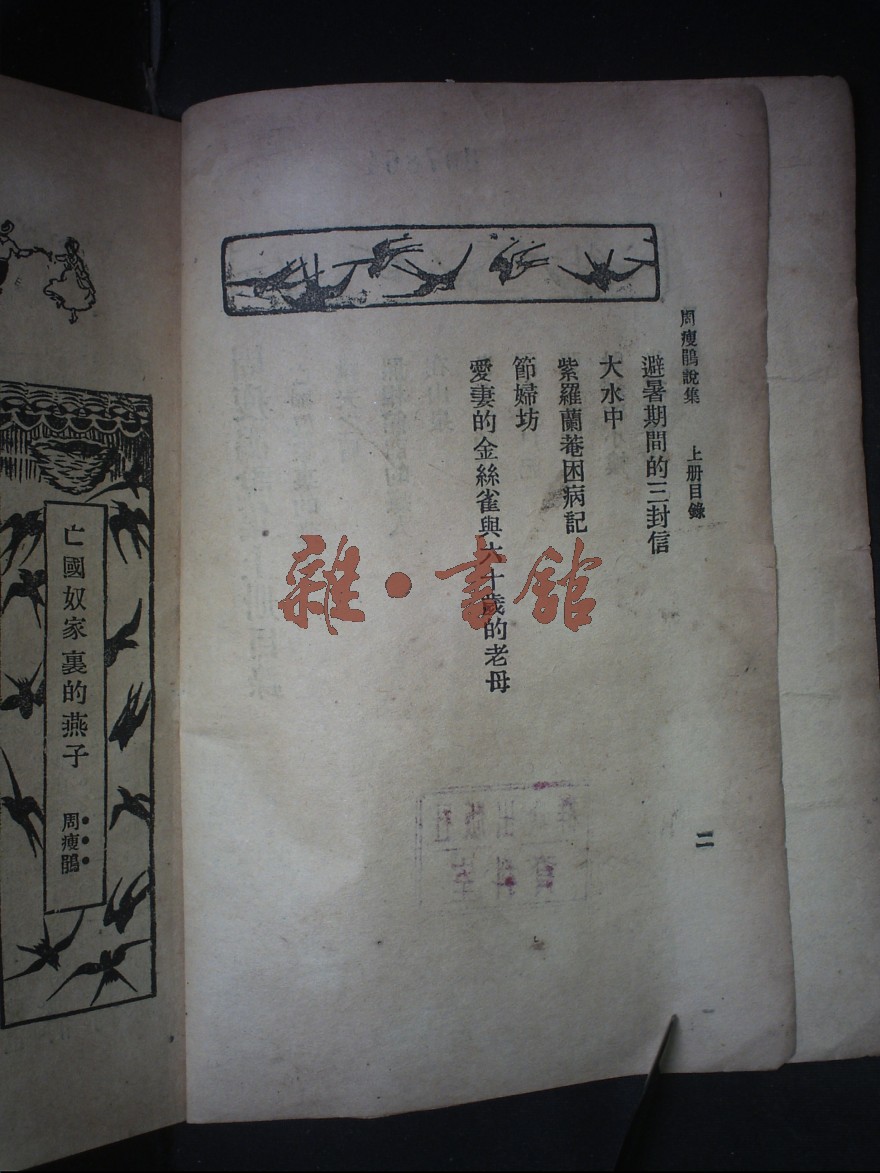 周瘦鵑說集 上册目錄
避暑期間的三封信
大水中
紫羅蘭菴困病記
節婦坊
愛妻的金絲雀與六十歲的老母
二
雜·書館
亡國奴家裏的燕子
周瘦鵑